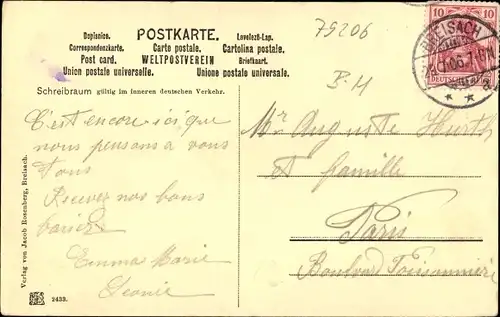 79206
POSTKARTE.
Dopisnice.
Correspondenzkarte.
Post card.
Union postale universelle.
Carte postale.
WELTPOSTVEREIN
Levelező-Lap.
Cartolina postale.
Briefkaart.
Unione postale universale.
Schreibraum gültig im inneren deutschen Verkehr.
10 10
BREISACH
B-H
C'est encore ici que
nous pensons a vous
tous
Recevez nos bons
baisers
Emma Marie
Leonie
Mr Auguste Hurth
et famille
Paris
Boulevard Poissonnière
Verlag von Jacob Rosenberg, Breisach.
2433.